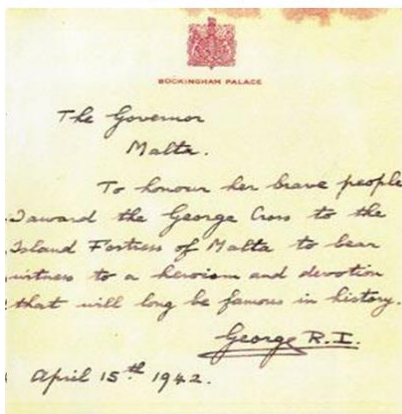 BUCKINGHAM PALACE
The Governor
Malta.
To honour her brave people
I award the George Cross to the
Island Fortress of Malta to bear
witness to a heroism and devotion
that will long be famous in history.
George R.I.
April 15th 1942.